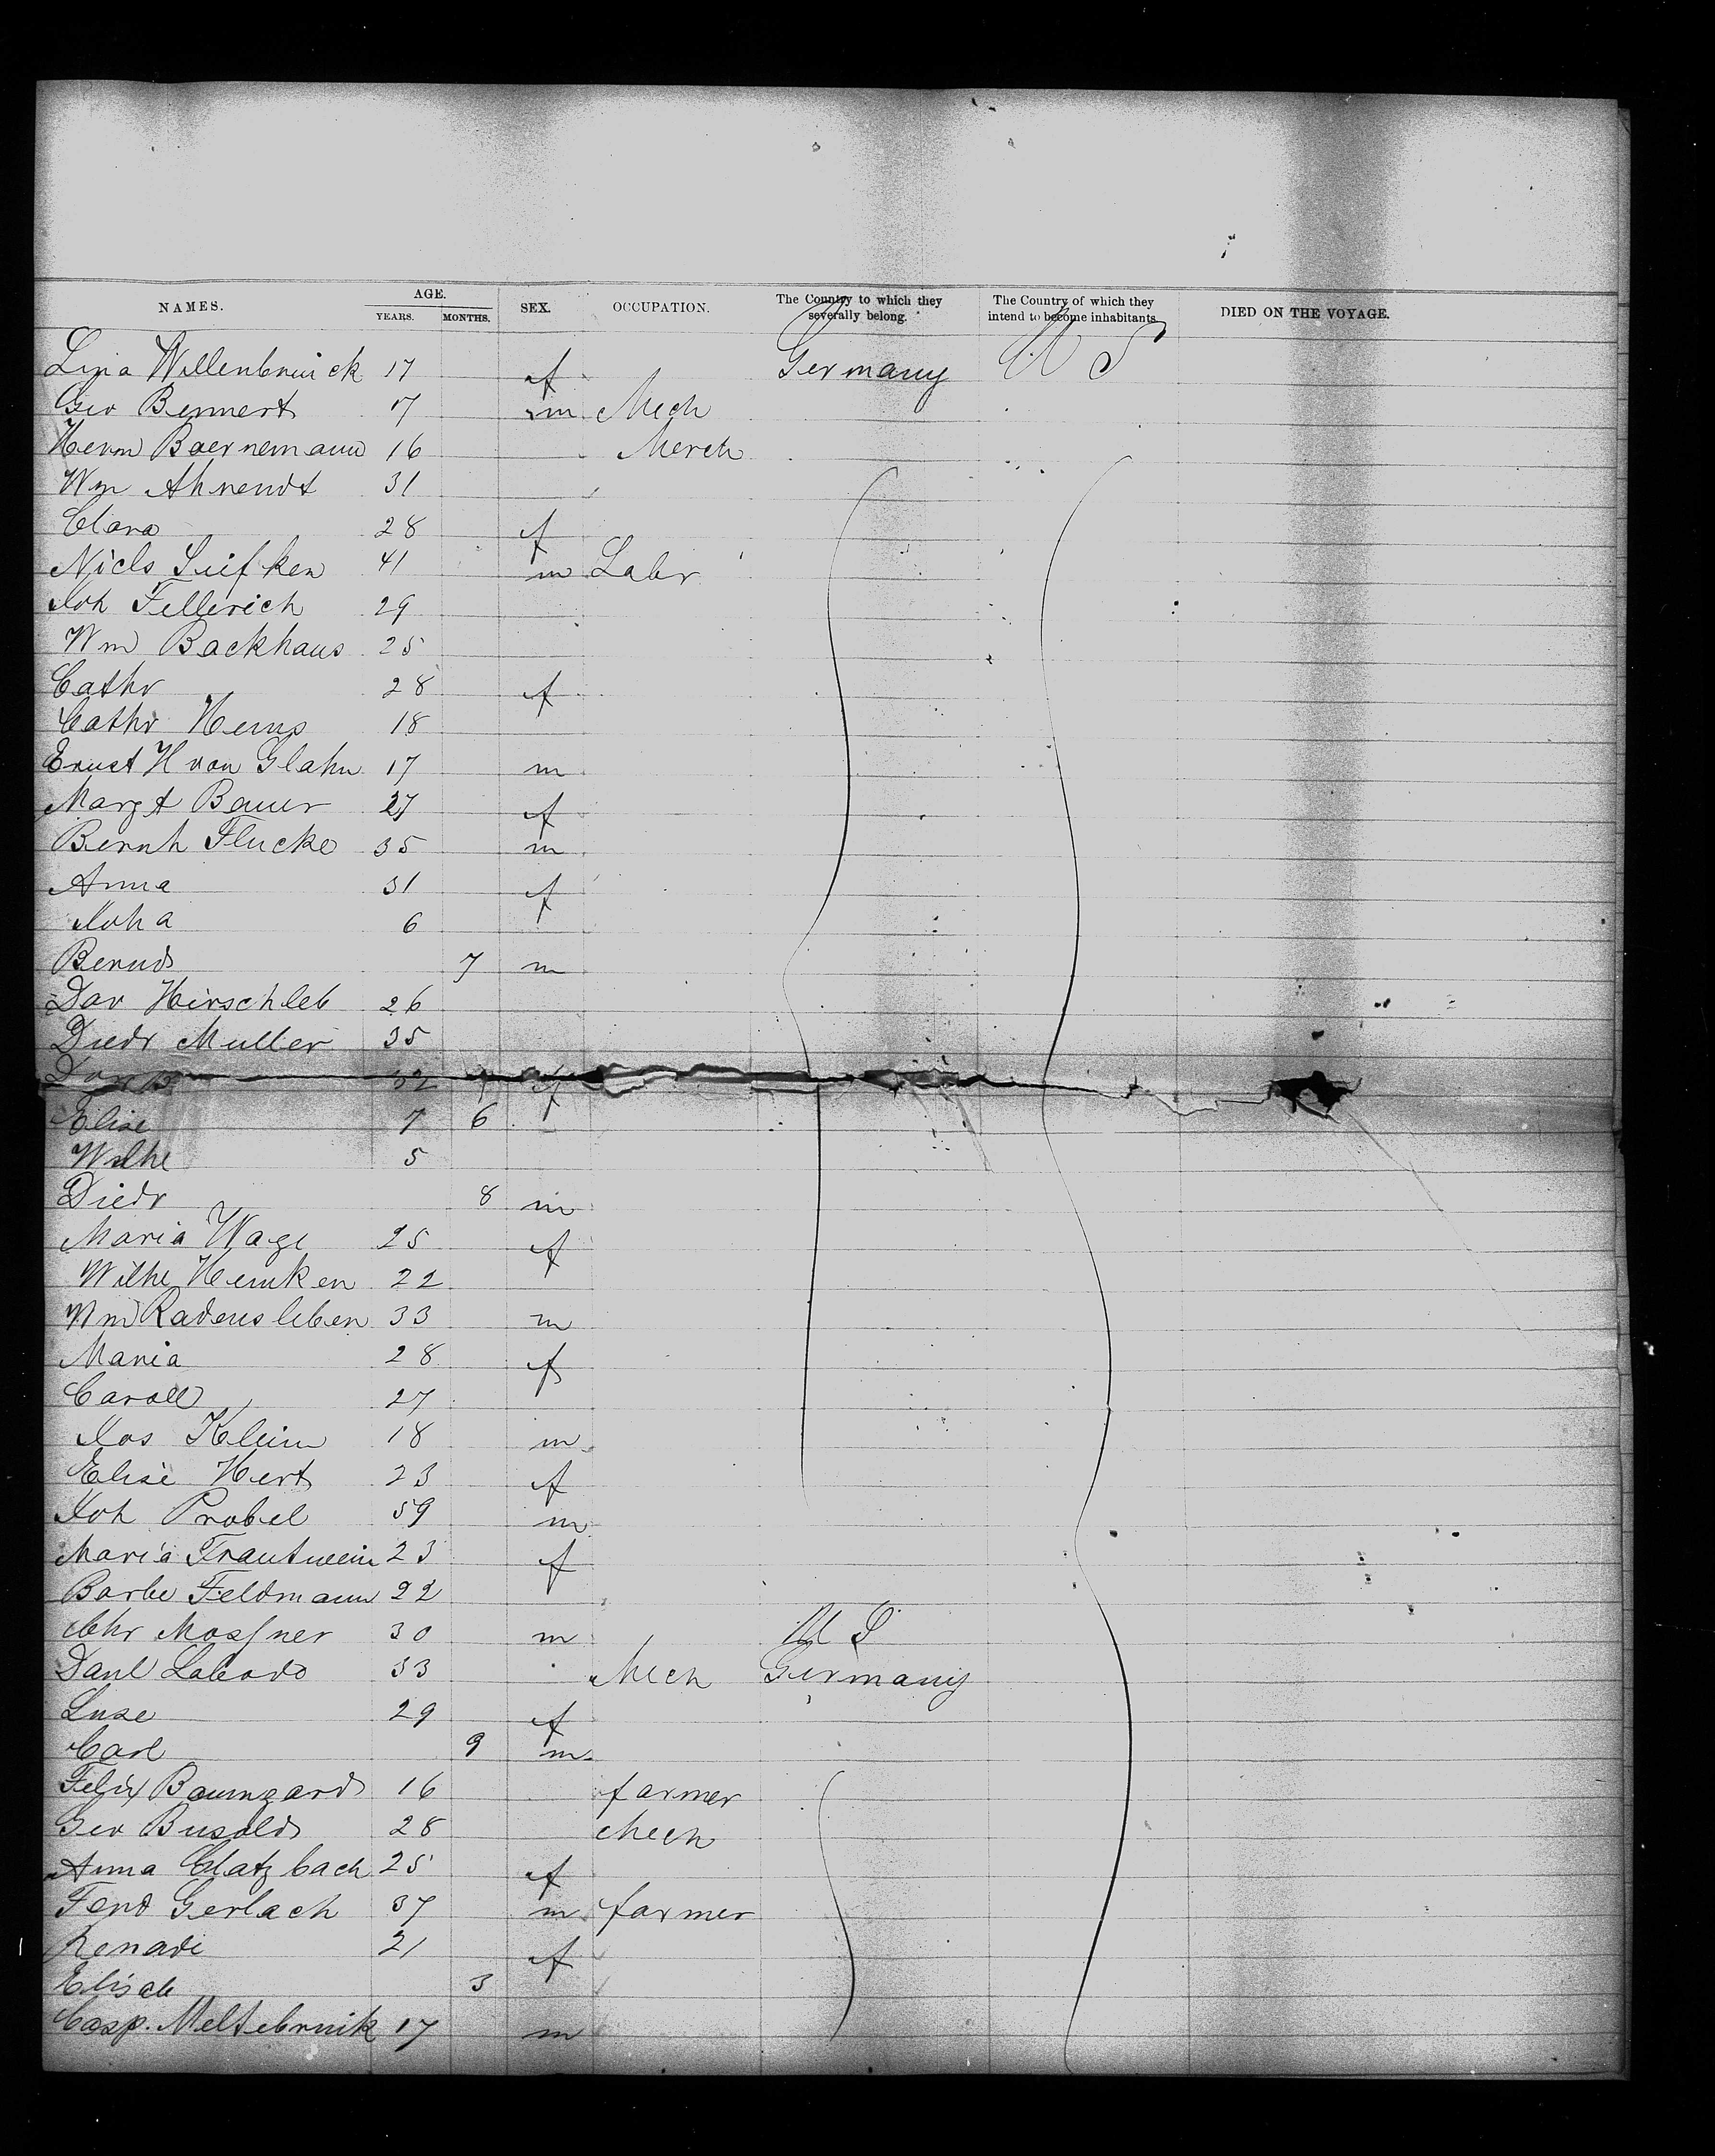 NAMES. AGE. YEARS. MONTHS. SEX. OCCUPATION. The Country to which they severally belong. The Country of which they intend to become inhabitants. DIED ON THE VOYAGE.
Lina Willenbruick 17 f Germany U S
Geo Bennert 17 m Mech
Herm Baernemann 16 Merch
Wm Ahrendt 31
Clara 28 f
Niels Suifken 41 m Labr
Joh Fellerich 29
Wm Backhaus 25
Cathr 28 f
Cathr Hems 18
Ernst H von Glahn 17 m
Margt Bauer 27 f
Bernh Flucke 35 m
Anna 31 f
Joha 6
Bernd 7 m
Dav Hirschleb 26
Diedr Muller 35
32 f
Elise 7 6
Wilhe 5
Diedr 8 m
Maria Wage 25 f
Wilhe Hemken 22
Wm Radensleben 33 m
Maria 28 f
Caroll 27
Jos Klein 18 m
Elise Hert 23 f
Joh Probel 59 m
Maria Trautwein 23 f
Barbe Feldmann 22
Chr Mossner 30 m U S
Danl Labodo 33 Mech Germany
Luse 29 f
Carl 9 m
Felix Baumgard 16 farmer
Geo Busold 28 Mech
Anna Clatzbach 25 f
Ferd Gerlach 37 m farmer
Renade 21 f
Elisab 3
Casp. Meltebruik 17 m